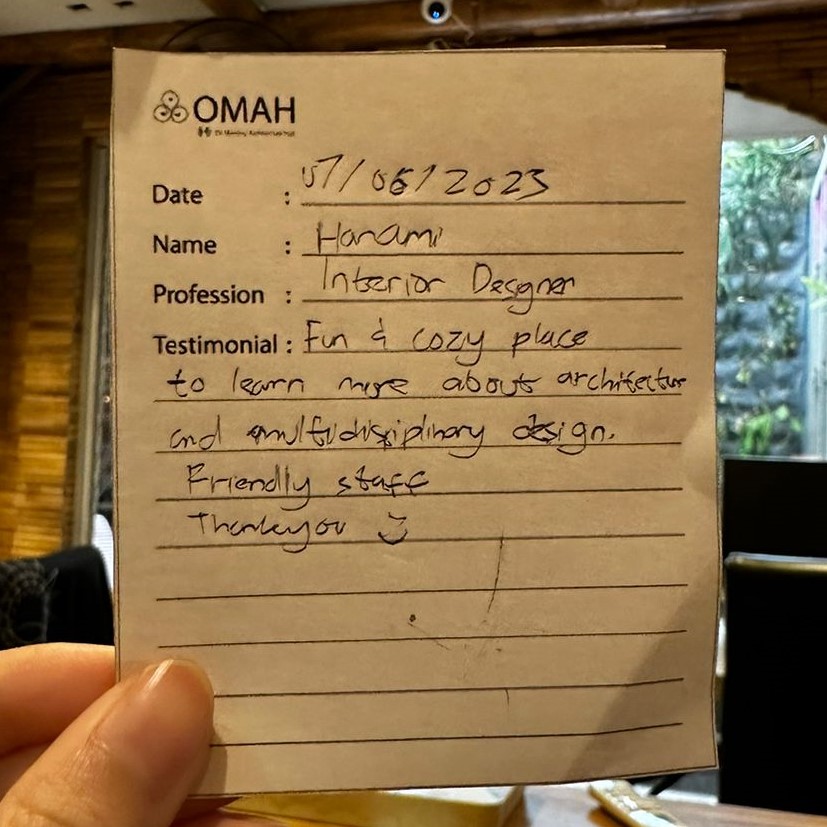 OMAH
Date : 07/06/2023
Name : Hanami
Profession : Interior Designer
Testimonial : Fun & cozy place
to learn more about architectur
and multidisiplinary design.
Friendly staff
Thankyou